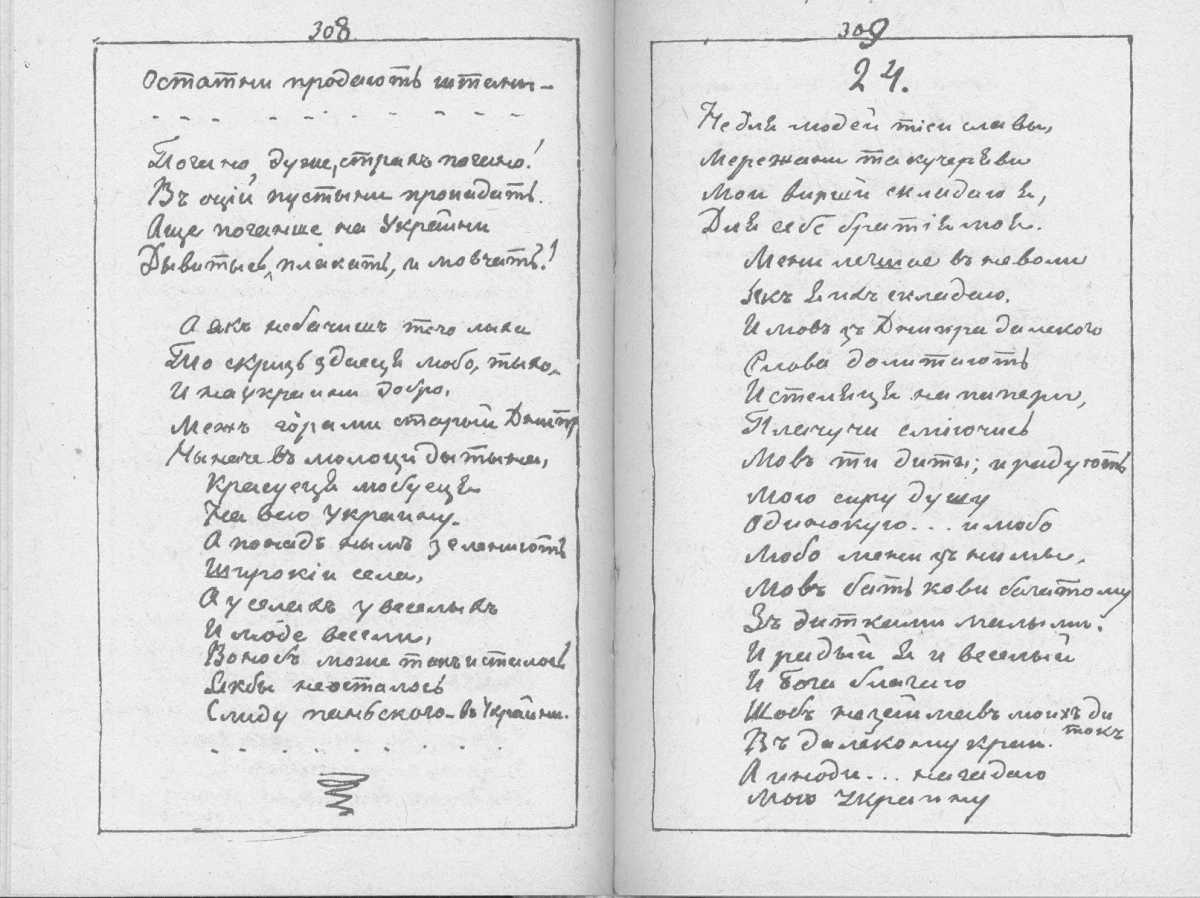 308
Остатни продають штаны —
Погано, дуже, страхъ погано!
Въ оцій пустыни пропадать.
А ще поганше на Украйни
Дывытысь, плакать, и мовчать!
А якъ небачишъ того лыха
То скризь здаеця любо, тыхо,
И на украини добро.
Межъ горами старый Днипр
Мыначе въ молоци дытына,
Красуеця любуеця
На всю украину.
А понадъ нымъ зеленіють
Широкіи села,
А у селахъ у веселыхъ
И люде весели,
Воно бъ може такъ и сталось
Якбы неосталось
Слиду паньского въ Украйни.
309
24.
Не для людей тіеи славы,
Мережани та кучеряви
Мои вирши складаю я,
Для себе братія моя.
Мени легшае въ неволи
Якъ я ихъ складаю.
И мовъ зъ Днипра далекого
Слова долитають
И стеляця на папери,
Плачучи сміючись
Мовъ ти дити; и радують
Мою сиру душу
Одинокую... и любо
Любо мени зъ нимы,
Мовъ батькови багатому
Зъ дитками малыми.
И радый я и веселый
И Бога благаю
Щобъ незаймавъ моихъ ди
токъ
Въ далекому краи.
А иноди... нагадаю
Мою Украину